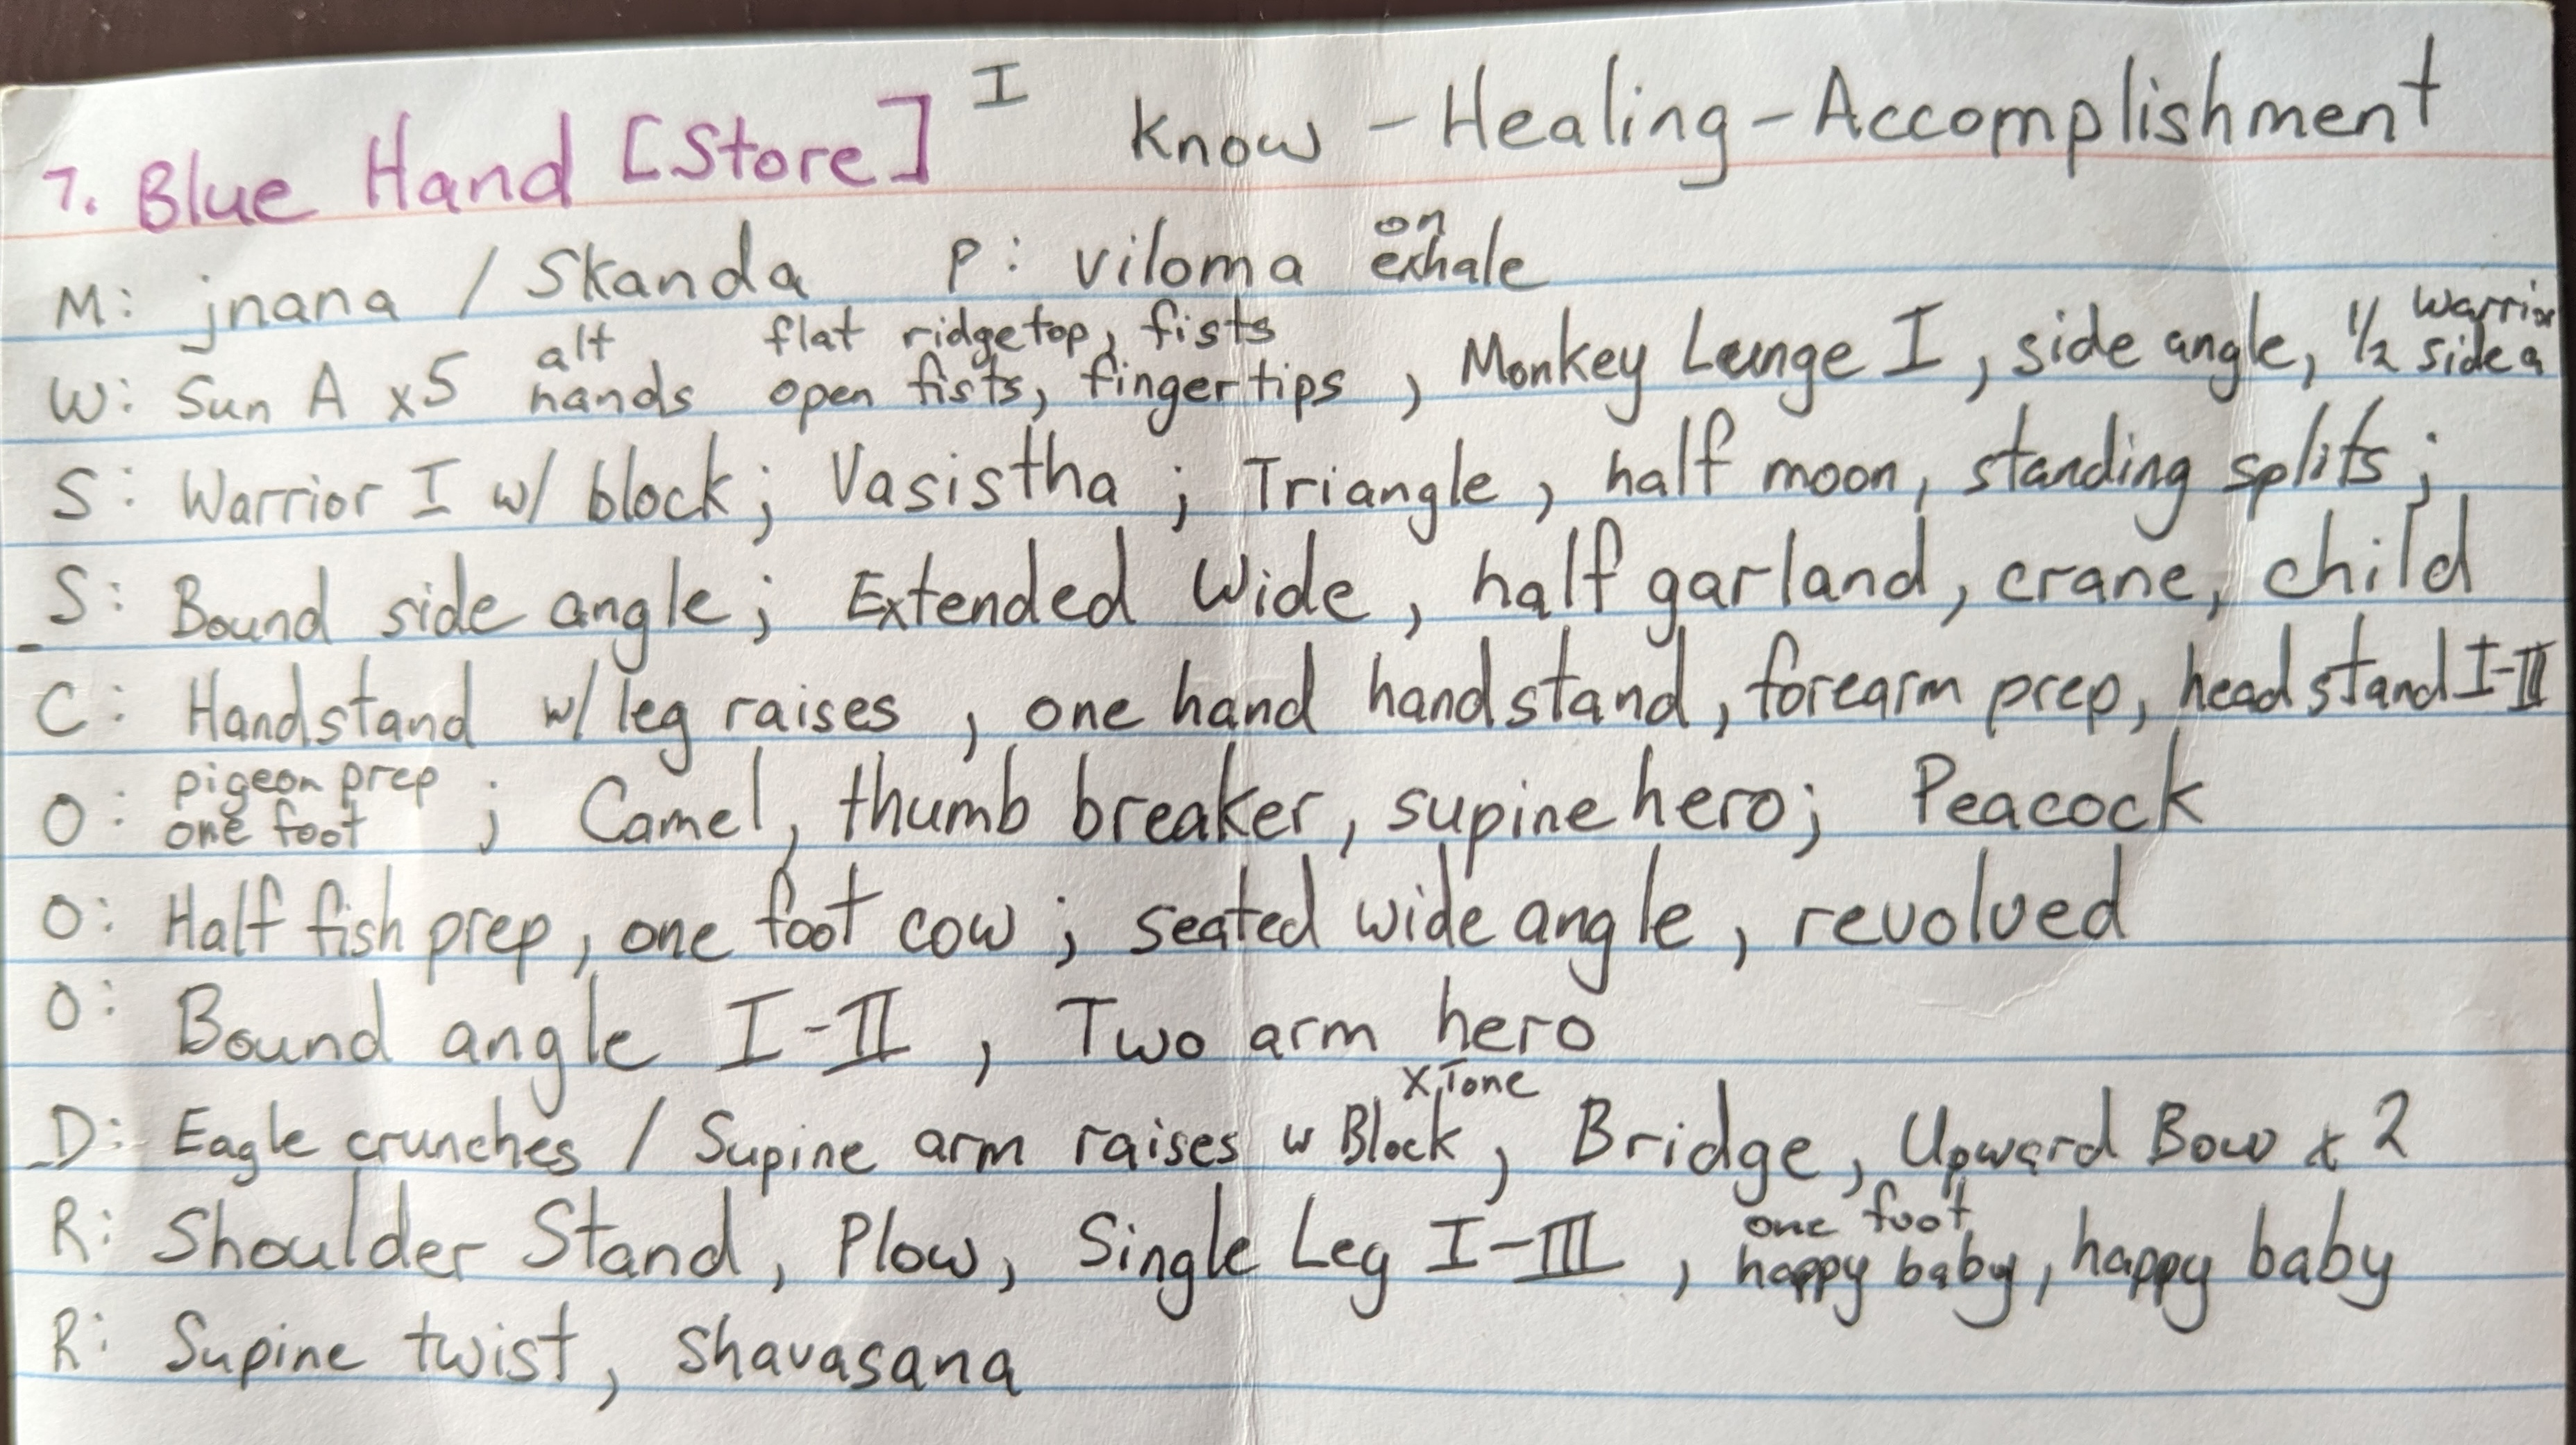 7. Blue Hand [Store] I Know - Healing - Accomplishment
M: jnana / Skanda P: viloma on exhale
W: Sun A x5 alt hands flat ridgetop, fists open fists, fingertips, Monkey Lunge I, side angle, 1/2 Warrior side a
S: Warrior I w/ block; Vasistha; Triangle, half moon, standing splits;
S: Bound side angle; Extended Wide, half garland, crane, child
C: Handstand w/ leg raises, one hand handstand, forearm prep, headstand I-III
O: pigeon prep one foot; Camel, thumb breaker, supine hero; Peacock
O: Half fish prep, one foot cow; seated wide angle, revolved
O: Bound angle I-II, Two arm hero
D: Eagle crunches / Supine arm raises w Block, Bridge, Upward Bow x 2
R: Shoulder Stand, Plow, Single Leg I-III, one foot happy baby, happy baby
R: Supine twist, shavasana